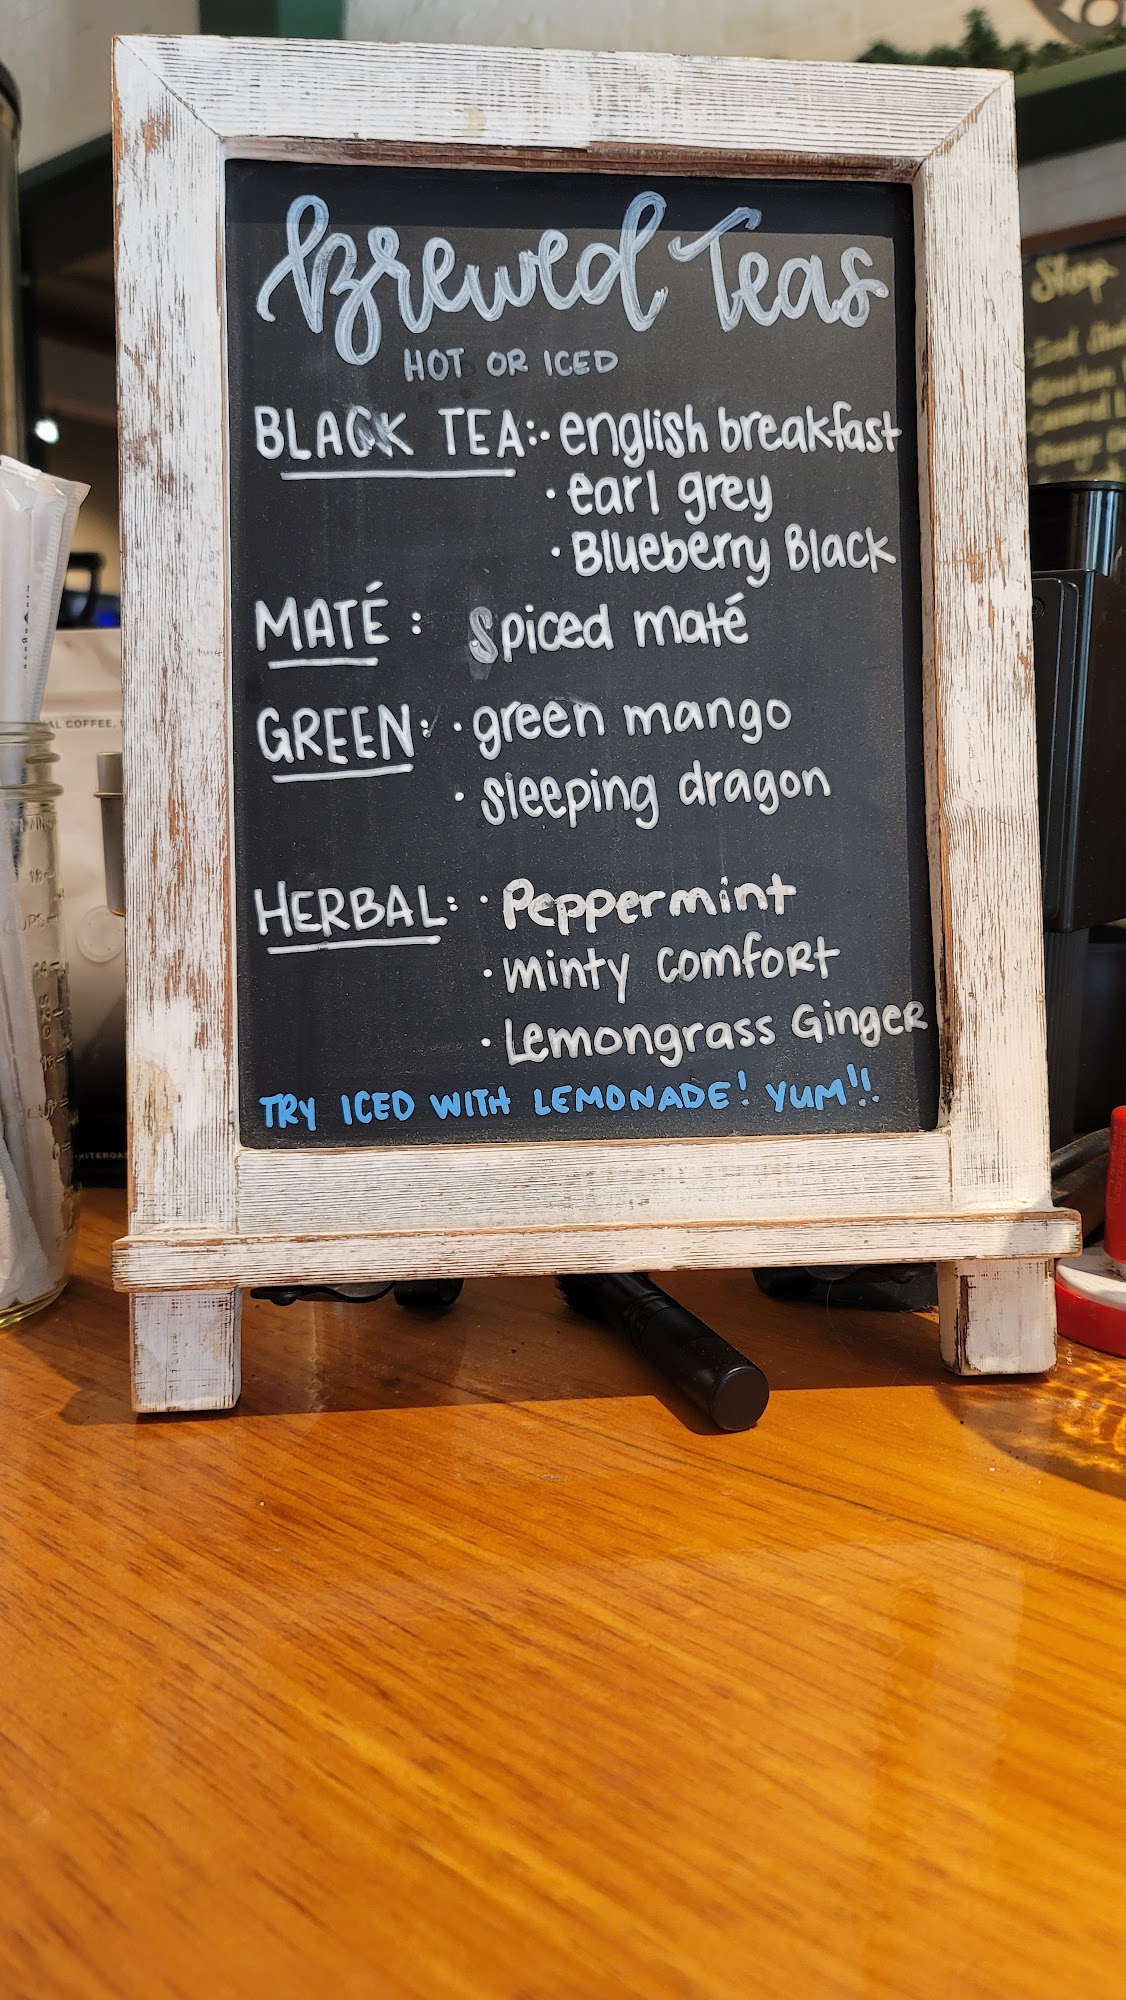 Brewed Teas
HOT OR ICED
BLACK TEA: · english breakfast
· earl grey
· Blueberry Black
MATÉ: Spiced maté
GREEN: · green mango
· sleeping dragon
HERBAL: · Peppermint
· minty comfort
· Lemongrass Ginger
TRY ICED WITH LEMONADE! YUM!!
Shop
COFFEE,